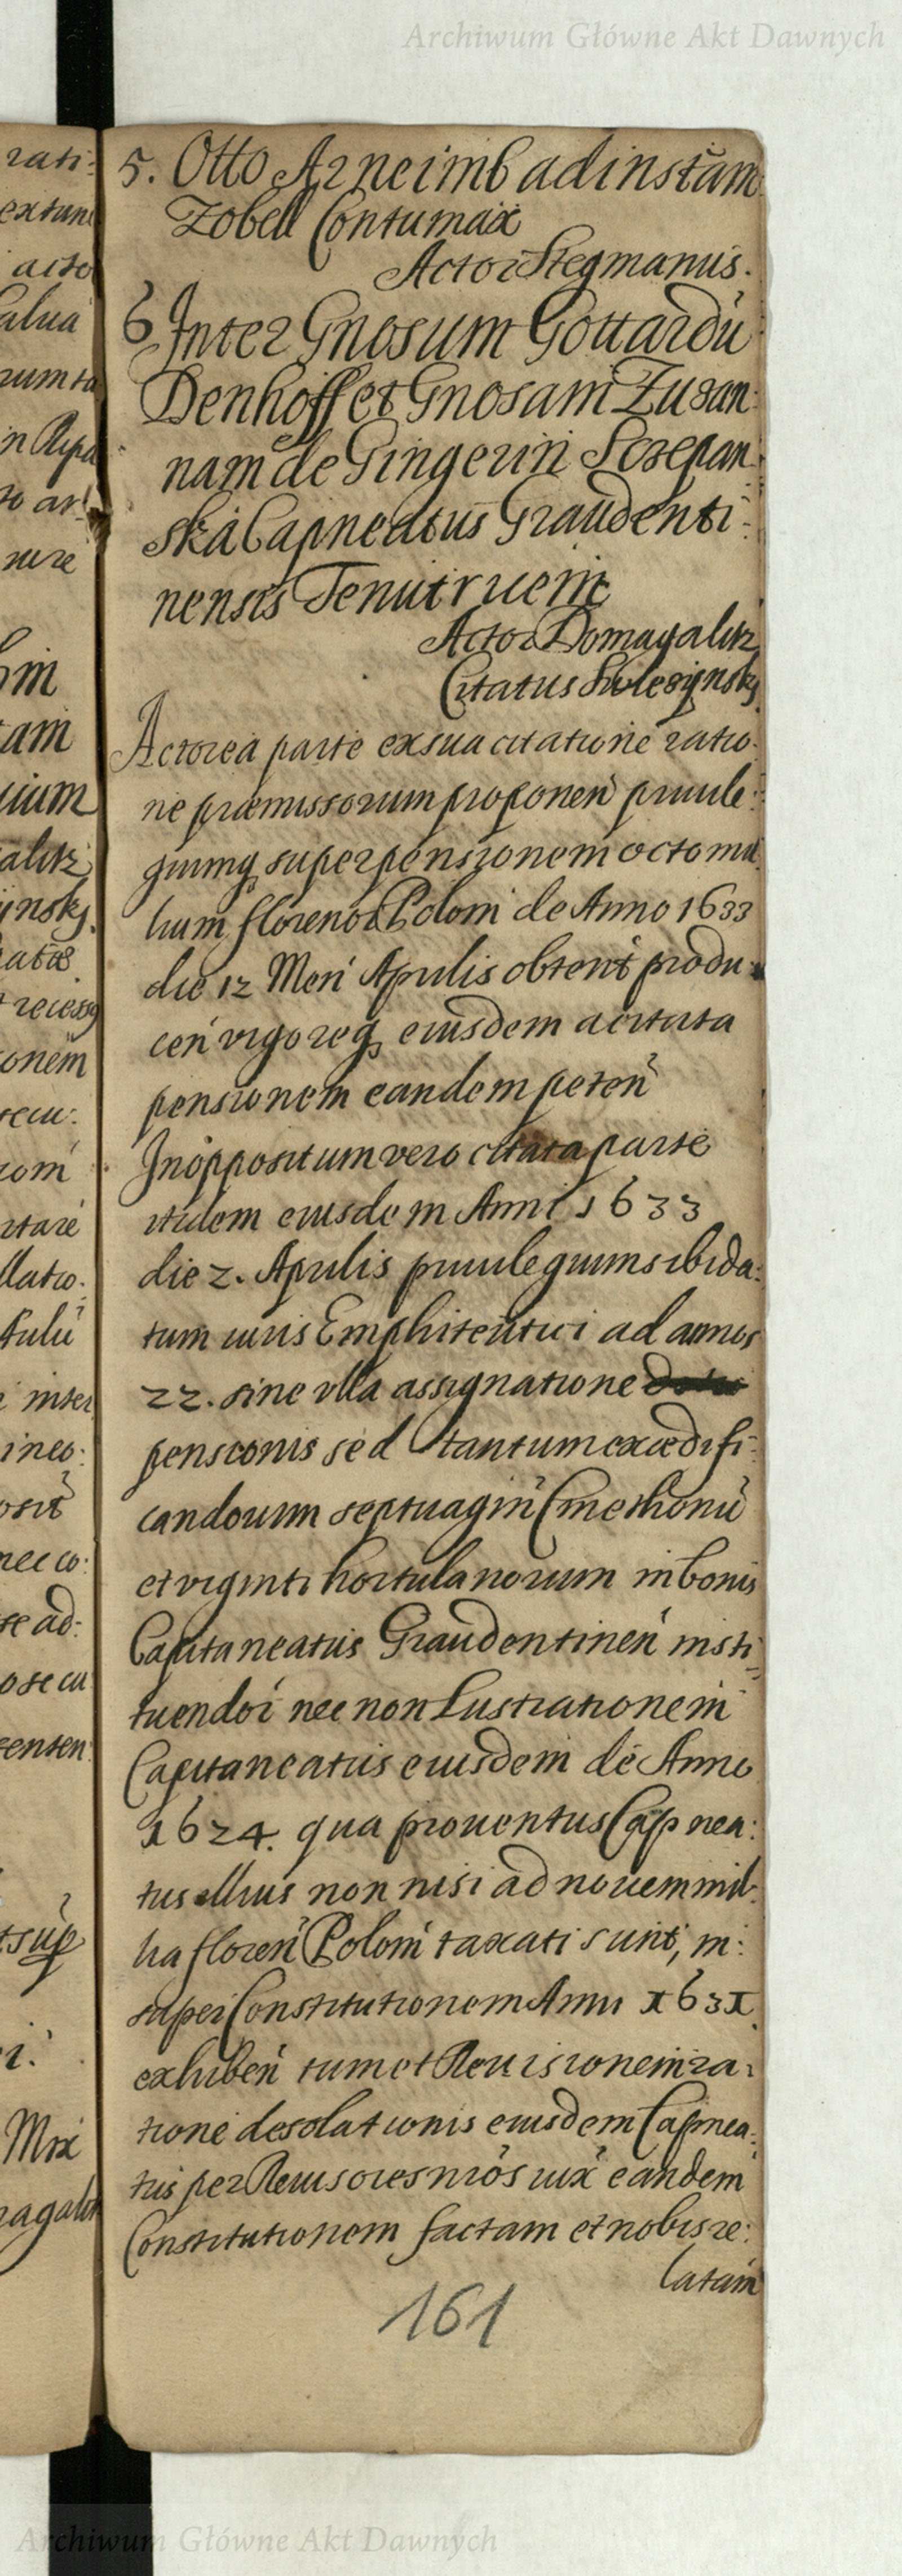 Archiwum Główne Akt Dawnych
5. Otto Arneimb ad instam
Zobell Contumax
Actor Stegmanus.
6 Inter Gnosum Gottardũ
Denhoff et Gnosam Zuzan:
nam de Gingerin Sczepan:
ska Capneatus Graudenti:
nensis Tenutricem
Actor Domagalik
Citatus Sulesijnskj
Actorea parte ex sua citatione ratio:
ne præmissorum proponen priuile:
giumq superpensionem octo mil
lium florenor Poloni de Anno 1633
die 12 Men Aprilis obtent produ:
cen vigoreq eiusdem a citata
pensionem eandem peten
In oppositum vero citata parte
itidem eiusdem Anni 1633
die 2. Aprilis priuilegium sibi da:
tum iuris Emphiteutici ad annos
22. sine vlla assignatione
pensionis sed tantum exædifi:
candorum septuagin Cmethonũ
et viginti hortulanorum in bonis
Capitaneatus Graudentinen insti:
tuendor nec non Lustrationem
Capitaneatus eiusdem de Anno
1624. qua prouentus Capnea:
tus illius non nisi ad nouem mil:
lia floren Poloni taxati sunt, in:
super Constitutionem Anni 1631
exhiben tum et Reuisionem ra:
tione desolationis eiusdem Capnea:
tus per Reuisores nros iux eandem
Constitutionem factam et nobis re:
latam
161
rati:
alua
in Ripa
iure
tam
alik
ijnskj
onem
itare
inter
nec co:
se ad:
sup
Mix
Archiwum Główne Akt Dawnych